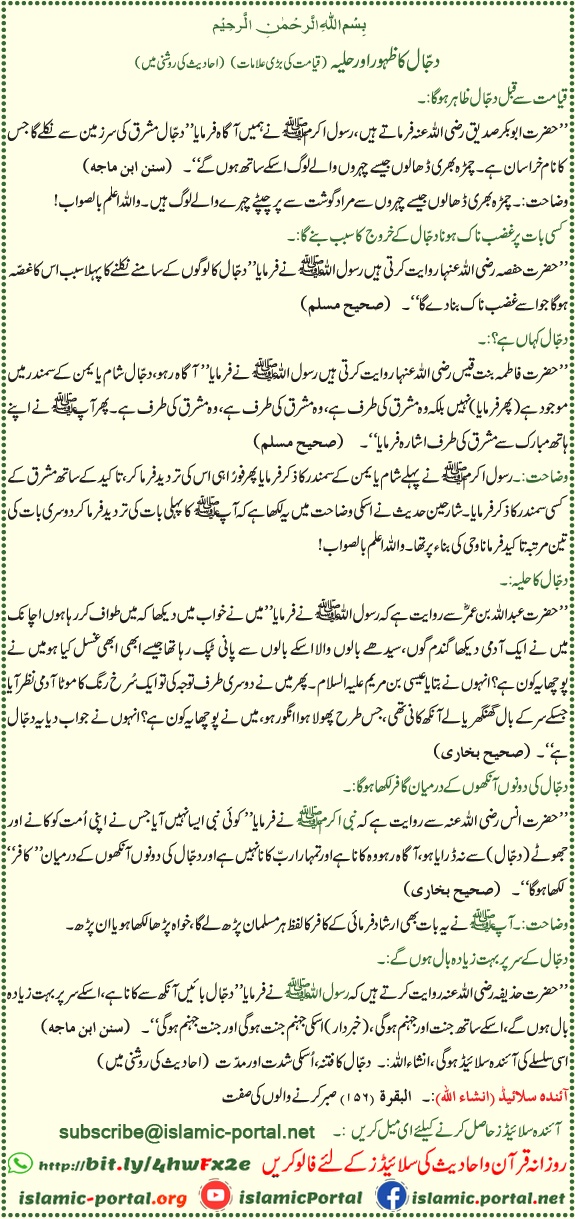 بِسْمِ اللهِ الرَّحْمٰنِ الرَّحِيْمِ
دجّال کا ظہور اور حلیہ (قیامت کی بڑی علامات) (احادیث کی روشنی میں)
قیامت سے قبل دجّال ظاہر ہوگا:۔
’’حضرت ابوبکر صدیق رضی اللہ عنہ فرماتے ہیں، رسول اکرم ﷺ نے ہمیں آگاہ فرمایا’’دجّال مشرق کی سرزمین سے نکلے گا جس
کا نام خراسان ہے۔ چمڑہ بھری ڈھالوں جیسے چہروں والے لوگ اسکے ساتھ ہوں گے‘‘۔ (سنن ابن ماجہ)
وضاحت:۔ چمڑہ بھری ڈھالوں جیسے چہروں سے مراد گوشت سے پر چپٹے چہرے والے لوگ ہیں۔ واللہ اعلم بالصواب!
کسی بات پر غضب ناک ہونا دجّال کے خروج کا سبب بنے گا:۔
’’حضرت حفصہ رضی اللہ عنہا روایت کرتی ہیں رسول اللہ ﷺ نے فرمایا’’دجّال کا لوگوں کے سامنے نکلنے کا پہلا سبب اس کا غصّہ
ہوگا جو اسے غضب ناک بنا دے گا‘‘۔ (صحیح مسلم)
دجّال کہاں ہے؟:۔
’’حضرت فاطمہ بنت قیس رضی اللہ عنہا روایت کرتی ہیں رسول اللہ ﷺ نے فرمایا’’آگاہ رہو، دجّال شام یا یمن کے سمندر میں
موجود ہے (پھر فرمایا) نہیں بلکہ وہ مشرق کی طرف ہے، وہ مشرق کی طرف ہے، وہ مشرق کی طرف ہے۔ پھر آپ ﷺ نے اپنے
ہاتھ مبارک سے مشرق کی طرف اشارہ فرمایا‘‘۔ (صحیح مسلم)
وضاحت:۔ رسول اکرم ﷺ نے پہلے شام یا یمن کے سمندر کا ذکر فرمایا پھر فورًا ہی اس کی تردید فرما کر، تاکید کے ساتھ مشرق کے
کسی سمندر کا ذکر فرمایا۔ شارحین حدیث نے اسکی وضاحت میں یہ لکھا ہے کہ آپ ﷺ کا پہلی بات کی تردید فرما کر دوسری بات کی
تین مرتبہ تاکید فرمانا وحی کی بناء پر تھا۔ واللہ اعلم بالصواب!
دجّال کا حلیہ:۔
’’حضرت عبداللہ بن عمرؓ سے روایت ہے کہ رسول اللہ ﷺ نے فرمایا’’میں نے خواب میں دیکھا کہ میں طواف کر رہا ہوں اچانک
میں نے ایک آدمی دیکھا گندم گوں، سیدھے بالوں والا اسکے بالوں سے پانی ٹپک رہا تھا جیسے ابھی ابھی غسل کیا ہو میں نے
پوچھا یہ کون ہے؟ انہوں نے بتایا عیسی بن مریم علیہ السلام۔ پھر میں نے دوسری طرف توجہ کی تو ایک سُرخ رنگ کا موٹا آدمی نظر آیا
جسکے سر کے بال گھنگھریالے آنکھ کانی تھی، جس طرح پھولا ہوا انگور ہو، میں نے پوچھا یہ کون ہے؟ انہوں نے جواب دیا یہ دجّال
ہے‘‘۔ (صحیح بخاری)
دجّال کی دونوں آنکھوں کے درمیان کافر لکھا ہوگا:۔
’’حضرت انس رضی اللہ عنہ سے روایت ہے کہ نبی اکرم ﷺ نے فرمایا’’کوئی نبی ایسا نہیں آیا جس نے اپنی اُمت کو کانے اور
جھوٹے (دجّال) سے نہ ڈرایا ہو، آگاہ رہو وہ کانا ہے اور تمہارا ربّ کانا نہیں ہے اور دجّال کی دونوں آنکھوں کے درمیان’’کافر‘‘
لکھا ہوگا‘‘۔ (صحیح بخاری)
وضاحت:۔ آپ ﷺ نے یہ بات بھی ارشاد فرمائی کے کافر کا لفظ ہر مسلمان پڑھ لے گا، خواہ پڑھا لکھا ہو یا ان پڑھ۔
دجّال کے سر پر بہت زیادہ بال ہوں گے:۔
’’حضرت حذیفہ رضی اللہ عنہ روایت کرتے ہیں کہ رسول اللہ ﷺ نے فرمایا’’دجّال بائیں آنکھ سے کانا ہے، اسکے سر پر بہت زیادہ
بال ہوں گے، اسکے ساتھ جنت اور جہنم ہوگی، (خبردار) اسکی جہنم جنت ہوگی اور جنت جہنم ہوگی‘‘۔ (سنن ابن ماجہ)
اسی سلسلے کی آئندہ سلائیڈ ہوگی، انشاء اللہ:۔ دجّال کا فتنہ، اُسکی شدت اور مدّت (احادیث کی روشنی میں)
آئندہ سلائیڈ (انشاء اللہ):۔ البقرة (۱۵۶) صبر کرنے والوں کی صفت
آئندہ سلائیڈز حاصل کرنے کیلئے ای میل کریں :۔ subscribe@islamic-portal.net
روزانہ قرآن و احادیث کی سلائیڈز کے لئے فالو کریں http://bit.ly/4hwFx2e
islamic-portal.org islamicPortal islamic.portal.net